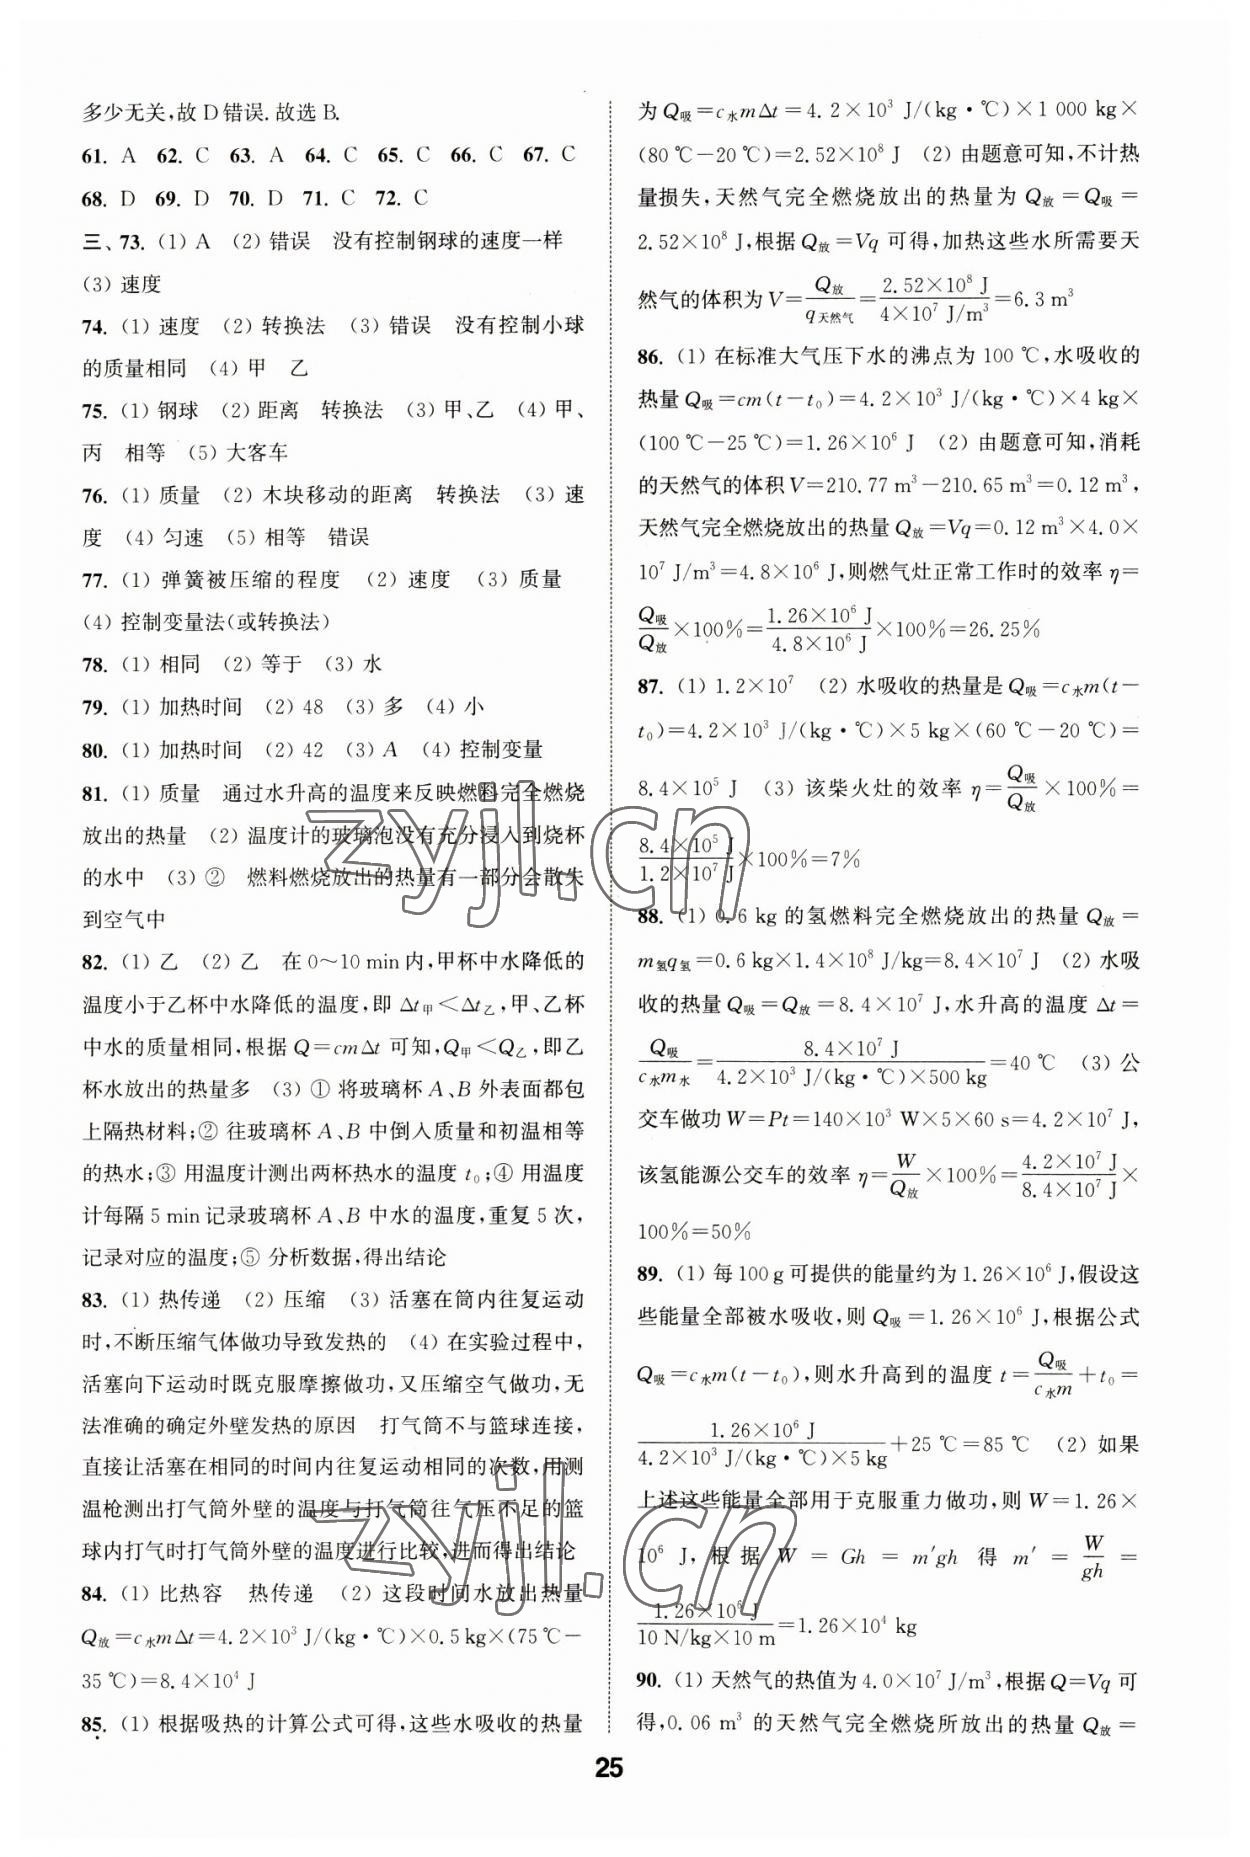 多少无关,故D错误.故选B.
61. A 62. C 63. A 64. C 65. C 66. C 67. C
68. D 69. D 70. D 71. C 72. C
三、73. (1) A (2) 错误 没有控制钢球的速度一样
(3) 速度
74. (1) 速度 (2) 转换法 (3) 错误 没有控制小球
的质量相同 (4) 甲 乙
75. (1) 钢球 (2) 距离 转换法 (3) 甲、乙 (4) 甲、
丙 相等 (5) 大客车
76. (1) 质量 (2) 木块移动的距离 转换法 (3) 速
度 (4) 匀速 (5) 相等 错误
77. (1) 弹簧被压缩的程度 (2) 速度 (3) 质量
(4) 控制变量法(或转换法)
78. (1) 相同 (2) 等于 (3) 水
79. (1) 加热时间 (2) 48 (3) 多 (4) 小
80. (1) 加热时间 (2) 42 (3) A (4) 控制变量
81. (1) 质量 通过水升高的温度来反映燃料完全燃烧
放出的热量 (2) 温度计的玻璃泡没有充分浸入到烧杯
的水中 (3) ② 燃料燃烧放出的热量有一部分会散失
到空气中
82. (1) 乙 (2) 乙 在 0～10 min内,甲杯中水降低的
温度小于乙杯中水降低的温度,即 Δt甲＜Δt乙,甲、乙杯
中水的质量相同,根据 Q＝cmΔt 可知,Q甲＜Q乙,即乙
杯水放出的热量多 (3) ① 将玻璃杯 A、B 外表面都包
上隔热材料;② 往玻璃杯 A、B 中倒入质量和初温相等
的热水;③ 用温度计测出两杯热水的温度 t₀;④ 用温度
计每隔 5 min记录玻璃杯 A、B 中水的温度,重复 5 次,
记录对应的温度;⑤ 分析数据,得出结论
83. (1) 热传递 (2) 压缩 (3) 活塞在筒内往复运动
时,不断压缩气体做功导致发热的 (4) 在实验过程中,
活塞向下运动时既克服摩擦做功,又压缩空气做功,无
法准确的确定外壁发热的原因 打气筒不与篮球连接,
直接让活塞在相同的时间内往复运动相同的次数,用测
温枪测出打气筒外壁的温度与打气筒往气压不足的篮
球内打气时打气筒外壁的温度进行比较,进而得出结论
84. (1) 比热容 热传递 (2) 这段时间水放出热量
Q放＝c水mΔt＝4.2×10³ J/(kg·℃)×0.5 kg×(75 ℃－
35 ℃)＝8.4×10⁴ J
85. (1) 根据吸热的计算公式可得,这些水吸收的热量
为 Q吸＝c水mΔt＝4.2×10³ J/(kg·℃)×1 000 kg×
(80 ℃－20 ℃)＝2.52×10⁸ J (2) 由题意可知,不计热
量损失,天然气完全燃烧放出的热量为 Q放＝Q吸＝
2.52×10⁸ J,根据 Q放＝Vq 可得,加热这些水所需要天
然气的体积为 V＝Q放/q天然气＝2.52×10⁸ J/4×10⁷ J/m³＝6.3 m³
86. (1) 在标准大气压下水的沸点为 100 ℃,水吸收的
热量 Q吸＝cm(t－t₀)＝4.2×10³ J/(kg·℃)×4 kg×
(100 ℃－25 ℃)＝1.26×10⁶ J (2) 由题意可知,消耗
的天然气的体积 V＝210.77 m³－210.65 m³＝0.12 m³,
天然气完全燃烧放出的热量 Q放＝Vq＝0.12 m³×4.0×
10⁷ J/m³＝4.8×10⁶ J,则燃气灶正常工作时的效率 η＝
Q吸/Q放×100％＝1.26×10⁶ J/4.8×10⁶ J×100％＝26.25％
87. (1) 1.2×10⁷ (2) 水吸收的热量是 Q吸＝c水m(t－
t₀)＝4.2×10³ J/(kg·℃)×5 kg×(60 ℃－20 ℃)＝
8.4×10⁵ J (3) 该柴火灶的效率 η＝Q吸/Q放×100％＝
8.4×10⁵ J/1.2×10⁷ J×100％＝7％
88. (1) 0.6 kg 的氢燃料完全燃烧放出的热量 Q放＝
m氢q氢＝0.6 kg×1.4×10⁸ J/kg＝8.4×10⁷ J (2) 水吸
收的热量 Q吸＝Q放＝8.4×10⁷ J,水升高的温度 Δt＝
Q吸/c水m水＝8.4×10⁷ J/4.2×10³ J/(kg·℃)×500 kg＝40 ℃ (3) 公
交车做功 W＝Pt＝140×10³ W×5×60 s＝4.2×10⁷ J,
该氢能源公交车的效率 η＝W/Q放×100％＝4.2×10⁷ J/8.4×10⁷ J×
100％＝50％
89. (1) 每 100 g 可提供的能量约为 1.26×10⁶ J,假设这
些能量全部被水吸收,则 Q吸＝1.26×10⁶ J,根据公式
Q吸＝c水m(t－t₀),则水升高到的温度 t＝Q吸/c水m＋t₀＝
1.26×10⁶ J/4.2×10³ J/(kg·℃)×5 kg＋25 ℃＝85 ℃ (2) 如果
上述这些能量全部用于克服重力做功,则 W＝1.26×
10⁶ J,根据 W＝Gh＝m′gh 得 m′＝W/gh＝
1.26×10⁶ J/10 N/kg×10 m＝1.26×10⁴ kg
90. (1) 天然气的热值为 4.0×10⁷ J/m³,根据 Q＝Vq 可
得,0.06 m³ 的天然气完全燃烧所放出的热量 Q放＝
25
zyjl.cn
zyjl.cn